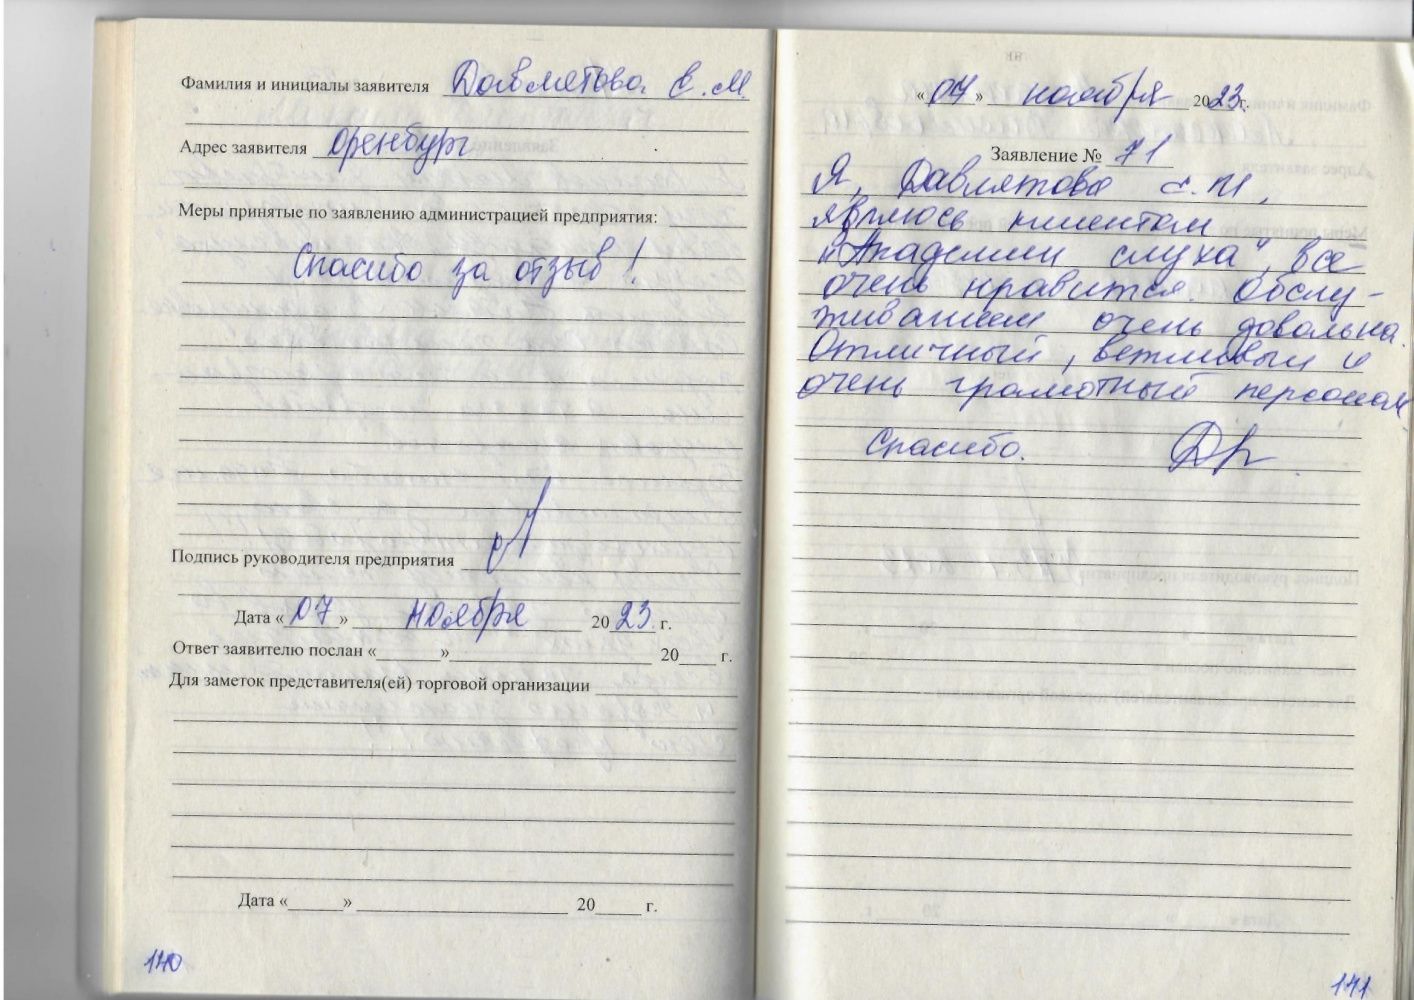 Фамилия и инициалы заявителя Давлетова Е.М.
Адрес заявителя Оренбург
Меры принятые по заявлению администрацией предприятия:
Спасибо за отзыв!
Подпись руководителя предприятия
Дата «07» ноября 2023 г.
Ответ заявителю послан «      »            20     г.
Для заметок представителя(ей) торговой организации
Дата «      »            20     г.
140
«07» ноября 2023г.
Заявление № 71
Я, Давлятова Е.М,
являюсь клиентом
"Академии слуха", все
очень нравится. Обслу-
живанием очень довольна.
Отличный, вежливый и
очень грамотный персонал
Спасибо.
141